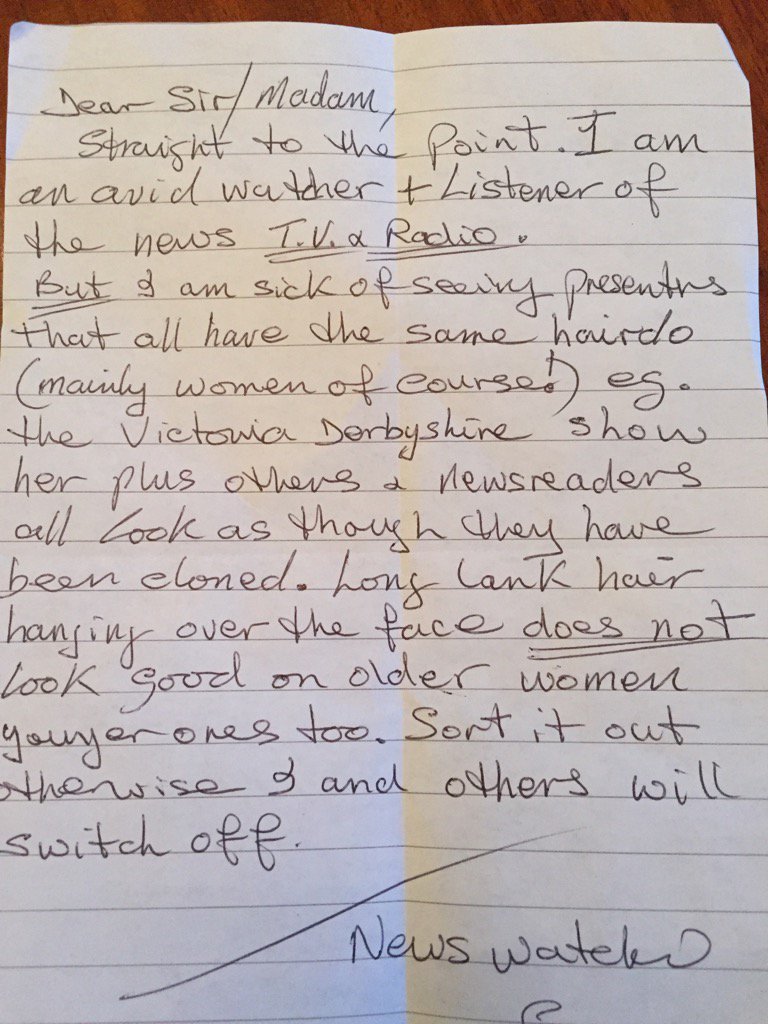 Dear Sir/Madam,
Straight to the Point. I am
an avid watcher + Listener of
the news T.V. & Radio.
But I am sick of seeing presenters
that all have the same hairdo
(mainly women of course!) eg.
the Victoria Derbyshire show
her plus others & newsreaders
all look as though they have
been cloned. Long lank hair
hanging over the face does not
look good on older women
younger ones too. Sort it out
otherwise I and others will
switch off.
News watcher